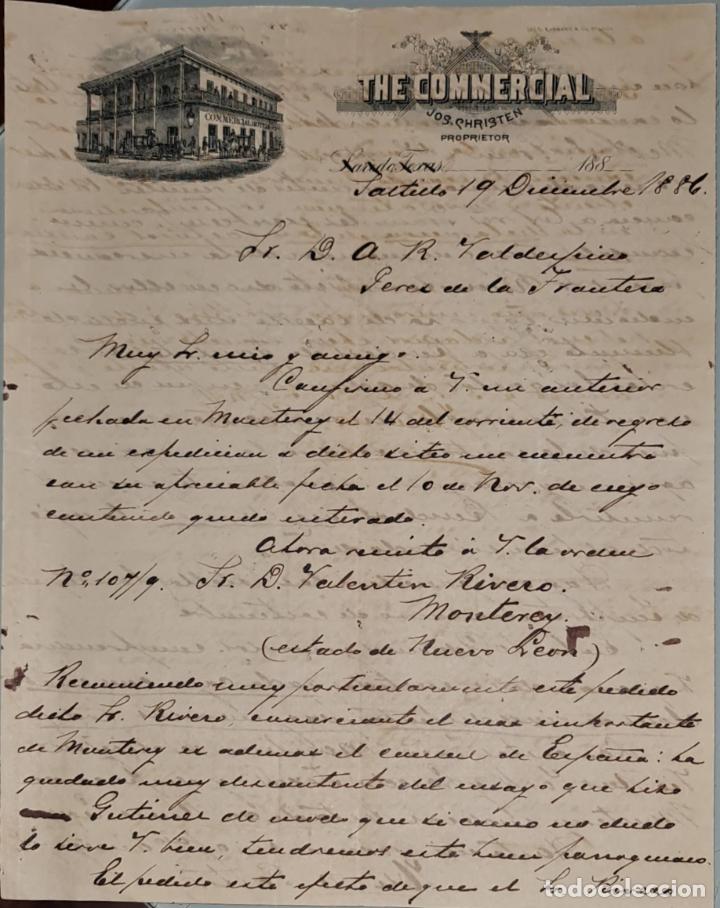 COMMERCIAL HOTEL
THE COMMERCIAL
JOS. CHRISTEN
PROPRIETOR
Laredo, Texas 188
Saltillo 19 Diciembre 1886.
Sr. D. A. R. Valdespino
Jerez de la Frontera
Muy Sr. mio y amigo.
Confirmo á V. mi anterior
fechada en Monterey el 14 del corriente, de regreso
de mi expedicion a dicho sitio me encuentro
con su apreciable fecha el 10 de Nov. de cuyo
contenido quedo enterado.
Ahora remito á V. la orden
Nº 107/9. Sr. D. Valentin Rivero.
Monterey.
(estado de Nuevo Leon)
Recomiendo muy particularmente este pedido
dicho Sr. Rivero, comerciante el mas importante
de Monterey es ademas el consul de España: ha
quedado muy descontento del ensayo que hizo
Gutierrez de modo que si como no dudo
lo sirve V. bien, tendremos este buen parroquiano.
El pedido este fecho de que el Sr.
todocoleccion